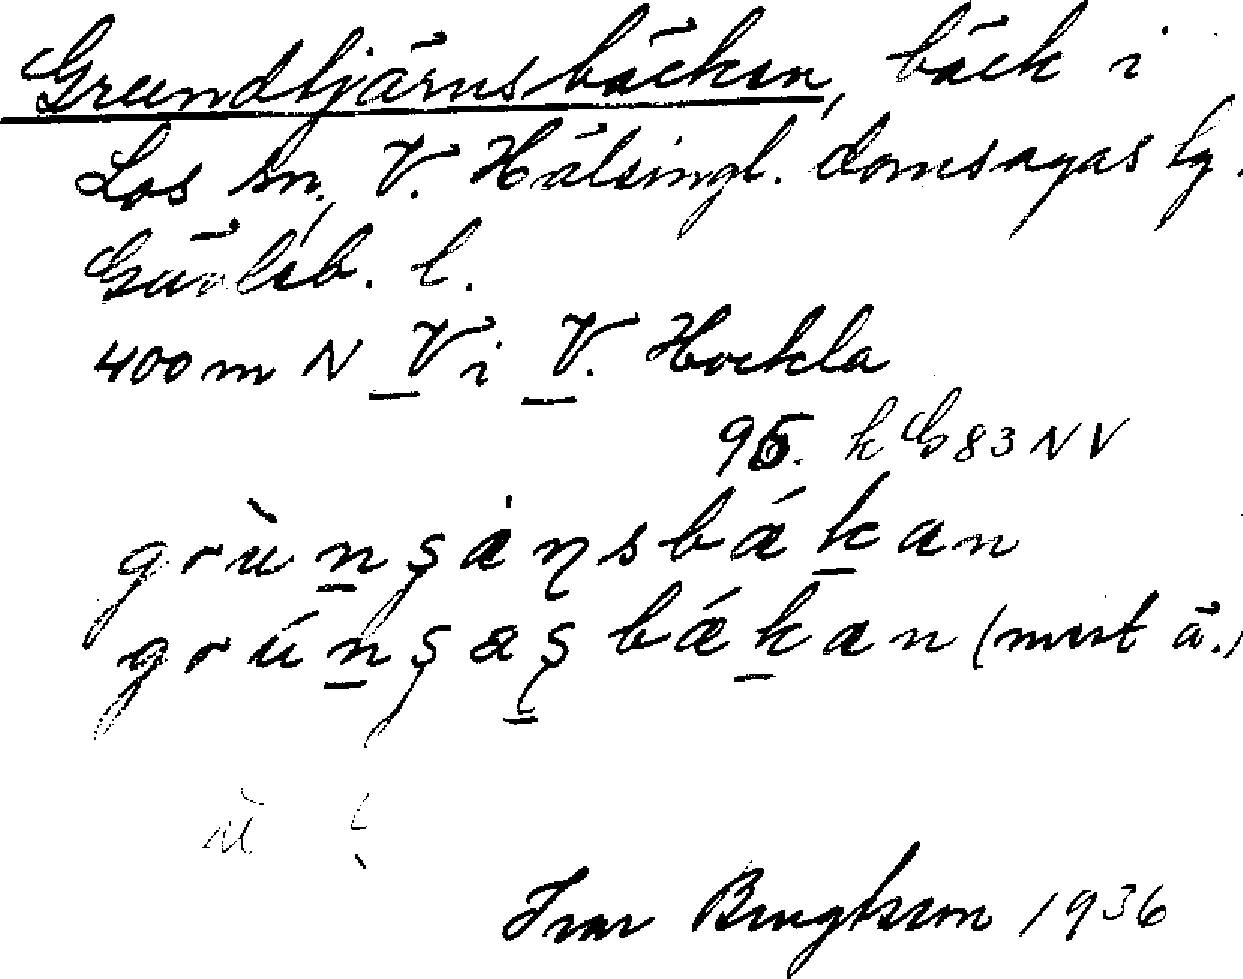 Grundtjärnsbäcken, bäck i
Los sn, V. Hälsingl. domsagas lg.
Gävleb. l.
400 m N V i V. Hockla
95. k G 83 NV
grùn̠ʂάɳsbάk̠an
grún̠ʂaʂ̠bǽk̠an (mest ä.)
ù
Ivar Bengtsson 1936